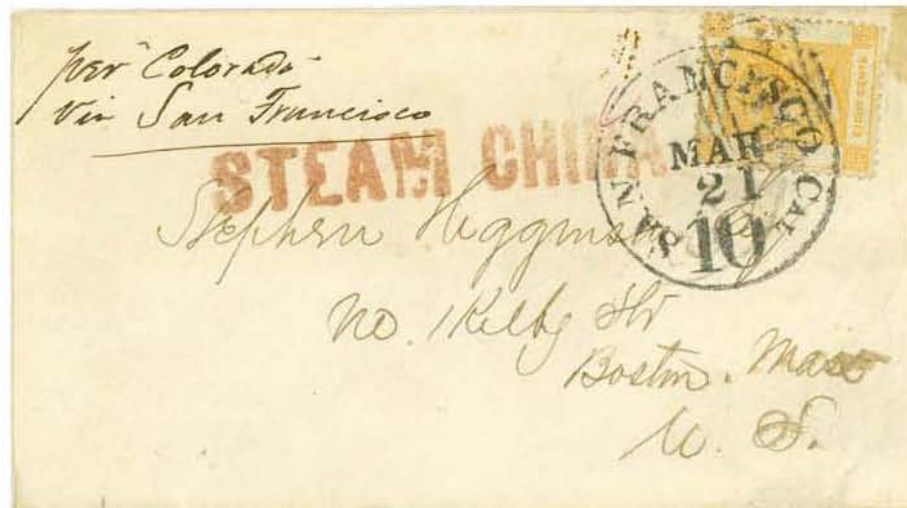 per Colorado
via San Francisco
STEAM CHINA
SAN FRANCISCO CAL
MAR
21
10
EIGHT CENTS
Stephen Higginson
No. 1 Kilby Str
Boston. Mass
U. S.